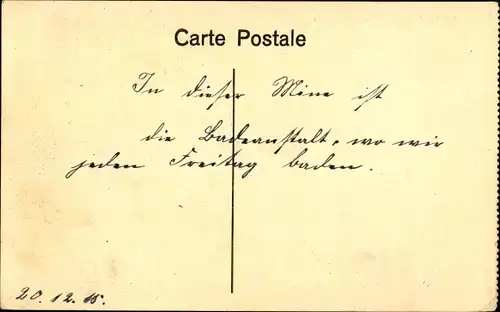 Carte Postale
In dieser Mine ist
die Badeanstalt, wo wir
jeden Freitag baden.
20.12.15.